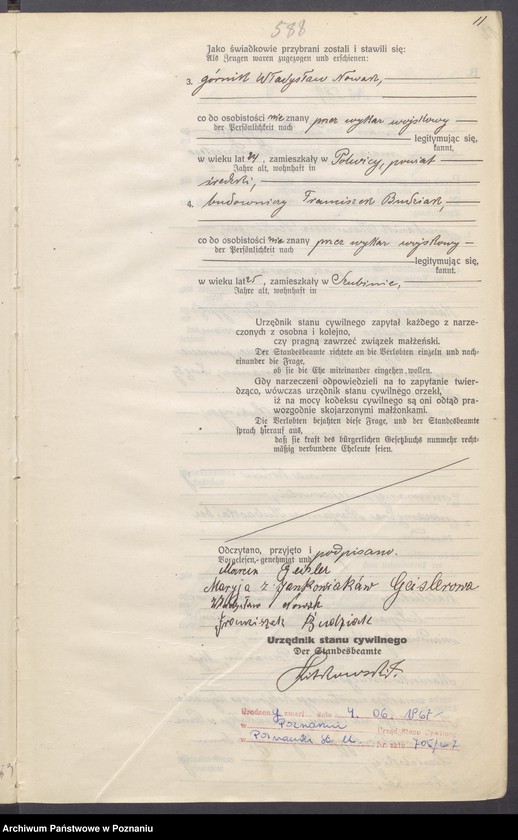 588
11
Jako świadkowie przybrani zostali i stawili się:
Als Zeugen waren zugezogen und erschienen:
3. górnik Władysław Nowak,
co do osobistości nie znany przez wykaz wojskowy
der Persönlichkeit nach
legitymując się,
kannt,
w wieku lat 24, zamieszkały w Polwicy, powiat
Jahre alt, wohnhaft in
średzki,
4. budowniczy Franciszek Budziak,
co do osobistości nie znany przez wykaz wojskowy
der Persönlichkeit nach
legitymując się,
kannt.
w wieku lat 25, zamieszkały w Szubinie,
Jahre alt, wohnhaft in
Urzędnik stanu cywilnego zapytał każdego z narze-
czonych z osobna i kolejno,
czy pragną zawrzeć związek małżeński.
Der Standesbeamte richtete an die Verlobten einzeln und nach-
einander die Frage,
ob sie die Ehe miteinander eingehen wollen.
Gdy narzeczeni odpowiedzieli na to zapytanie twier-
dząco, wówczas urzędnik stanu cywilnego orzekł,
iż na mocy kodeksu cywilnego są oni odtąd pra-
wozgodnie skojarzonymi małżonkami.
Die Verlobten bejahten diese Frage, und der Standesbeamte
sprach hierauf aus,
daß sie kraft des bürgerlichen Gesetzbuchs nunmehr recht-
mäßig verbundene Eheleute seien.
Odczytano, przyjęto i podpisano.
Vorgelesen, genehmigt und
Marcin Geisler
Maryja z Jankowiaków Geislerowa
Władysław Nowak
Franciszek Budziak
Urzędnik stanu cywilnego
Der Standesbeamte
zmarł dnia 4. 06. 1967
w Poznaniu Urząd Stanu Cywilnego
w Poznań St. M. Nr aktu
Archiwum Państwowe w Poznaniu